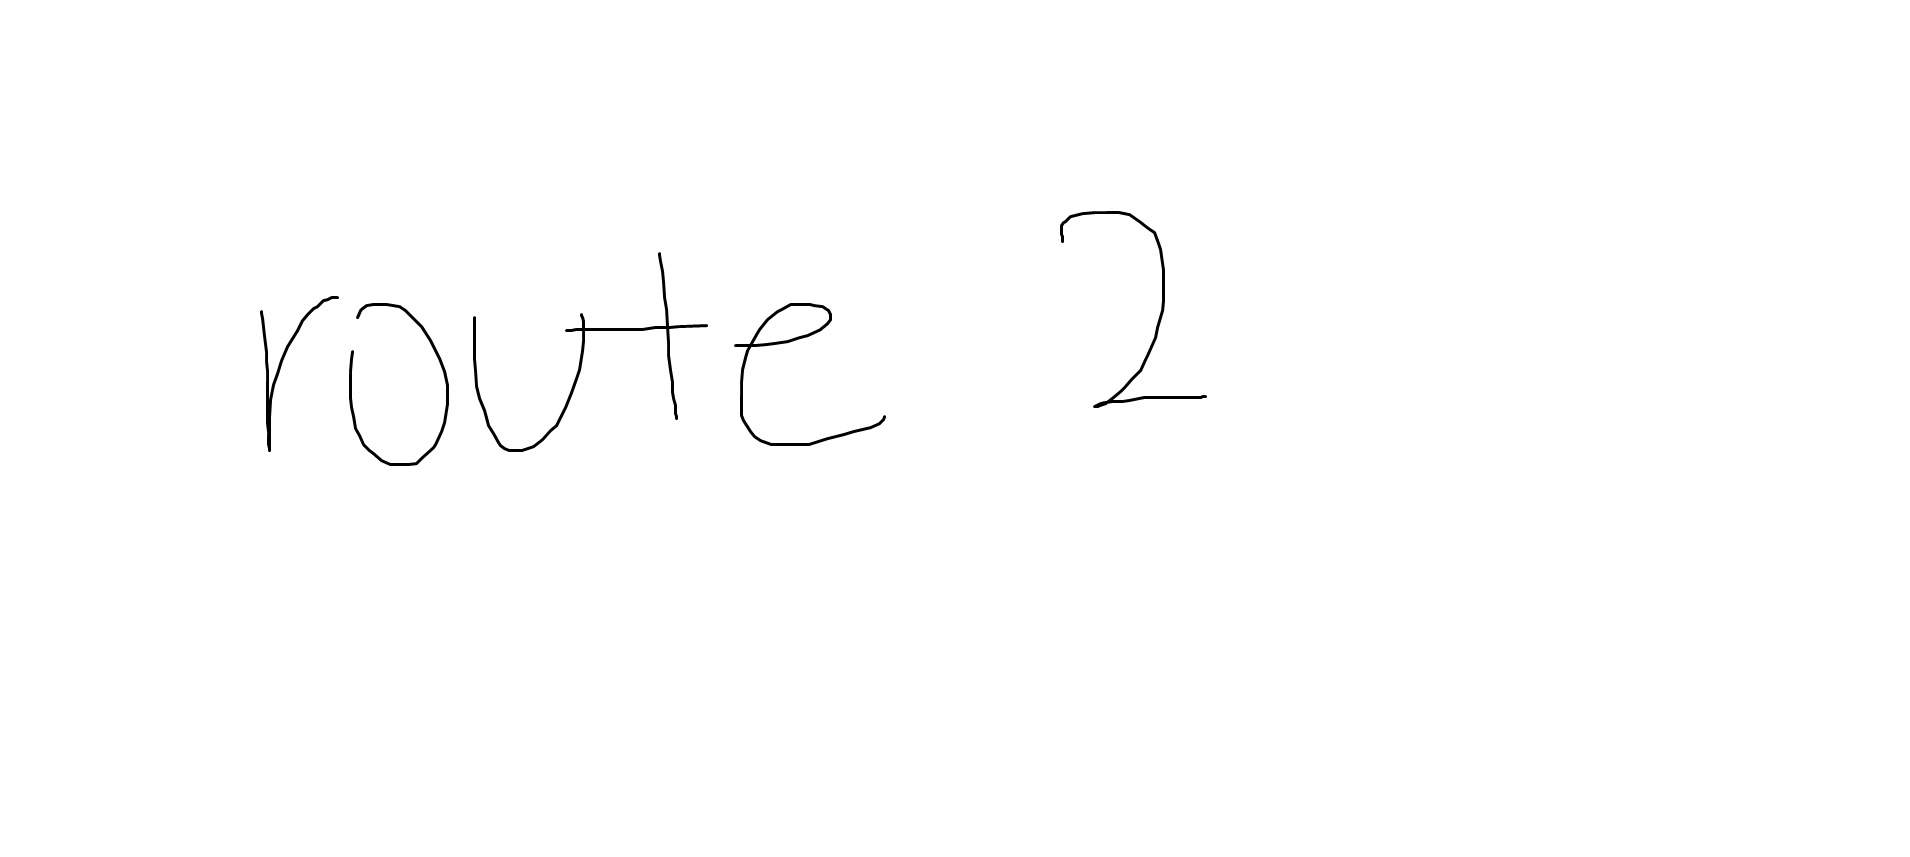 route 2